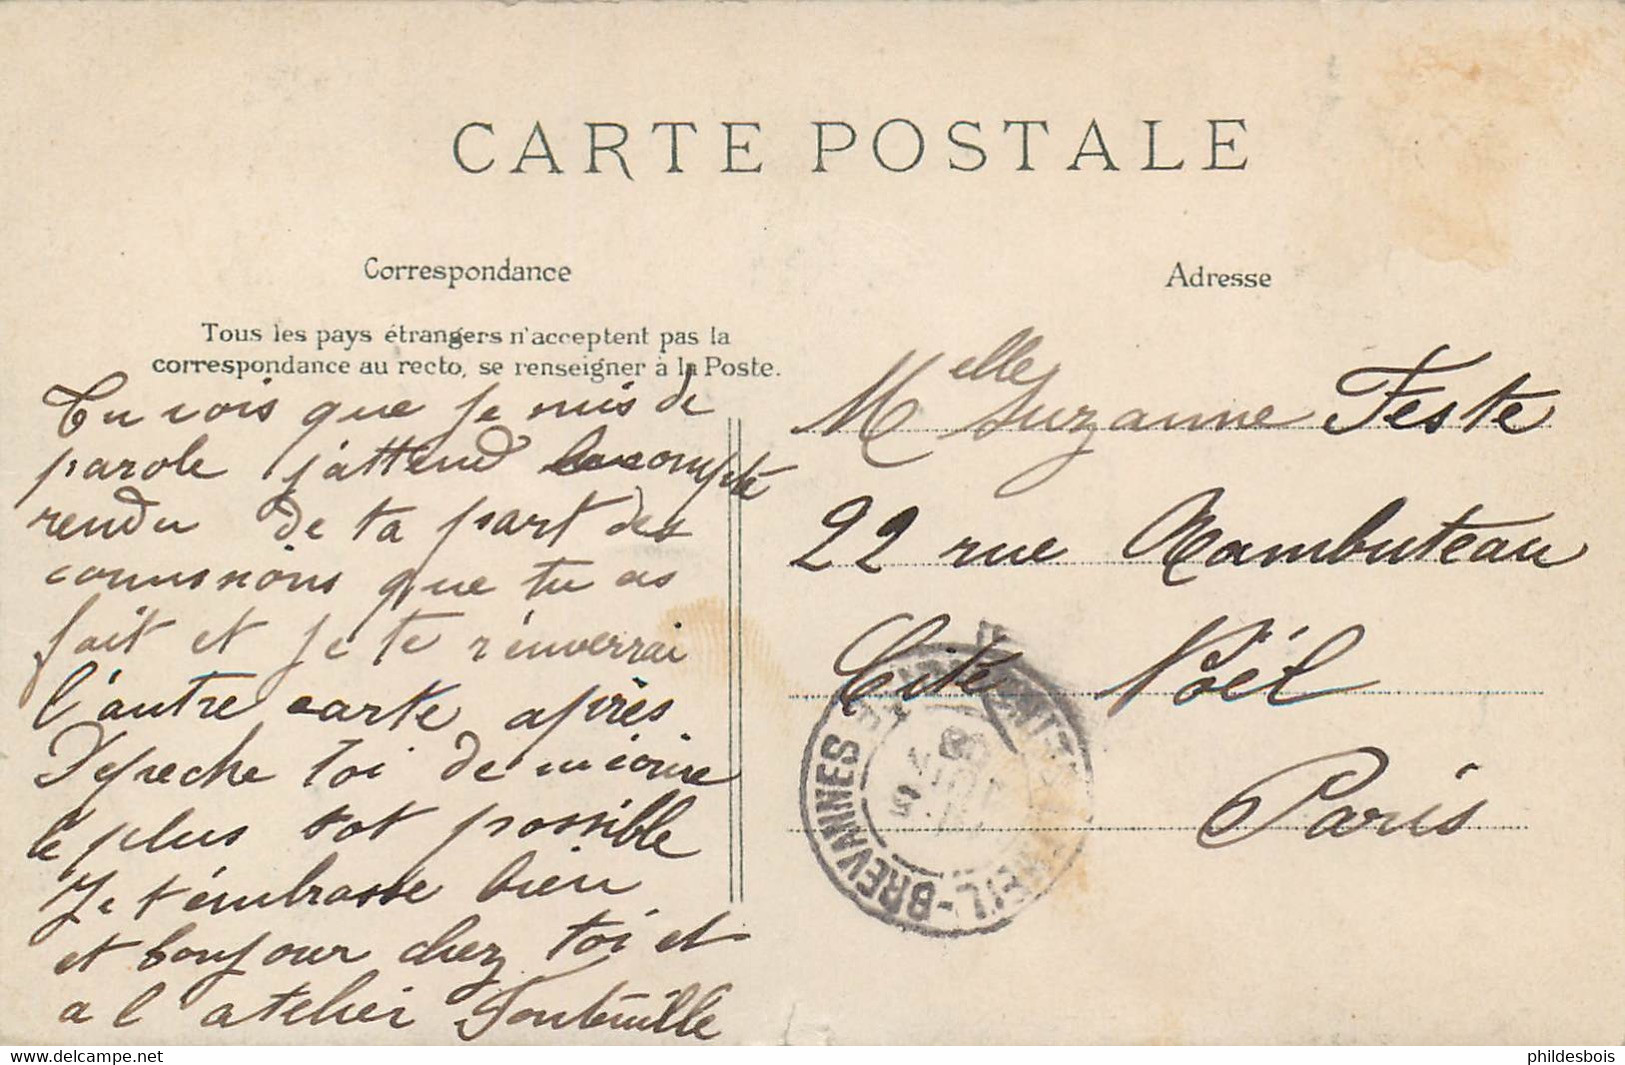 CARTE POSTALE
Correspondance
Tous les pays étrangers n'acceptent pas la
correspondance au recto, se renseigner à la Poste.
Tu vois que je suis de
parole j'attend le compte
rendu de ta part des
commisions que tu as
fait et je te r'enverrai
l'autre carte après
Dépeche toi de m'ecrire
le plus tot possible
Je t'embrasse bien
et bonjour chez toi et
a l'atelier Fonteuille
Adresse
Melle Suzanne Feste
22 rue Rambuteau
Cité Noël
Paris
BREVANNES
phildesbois